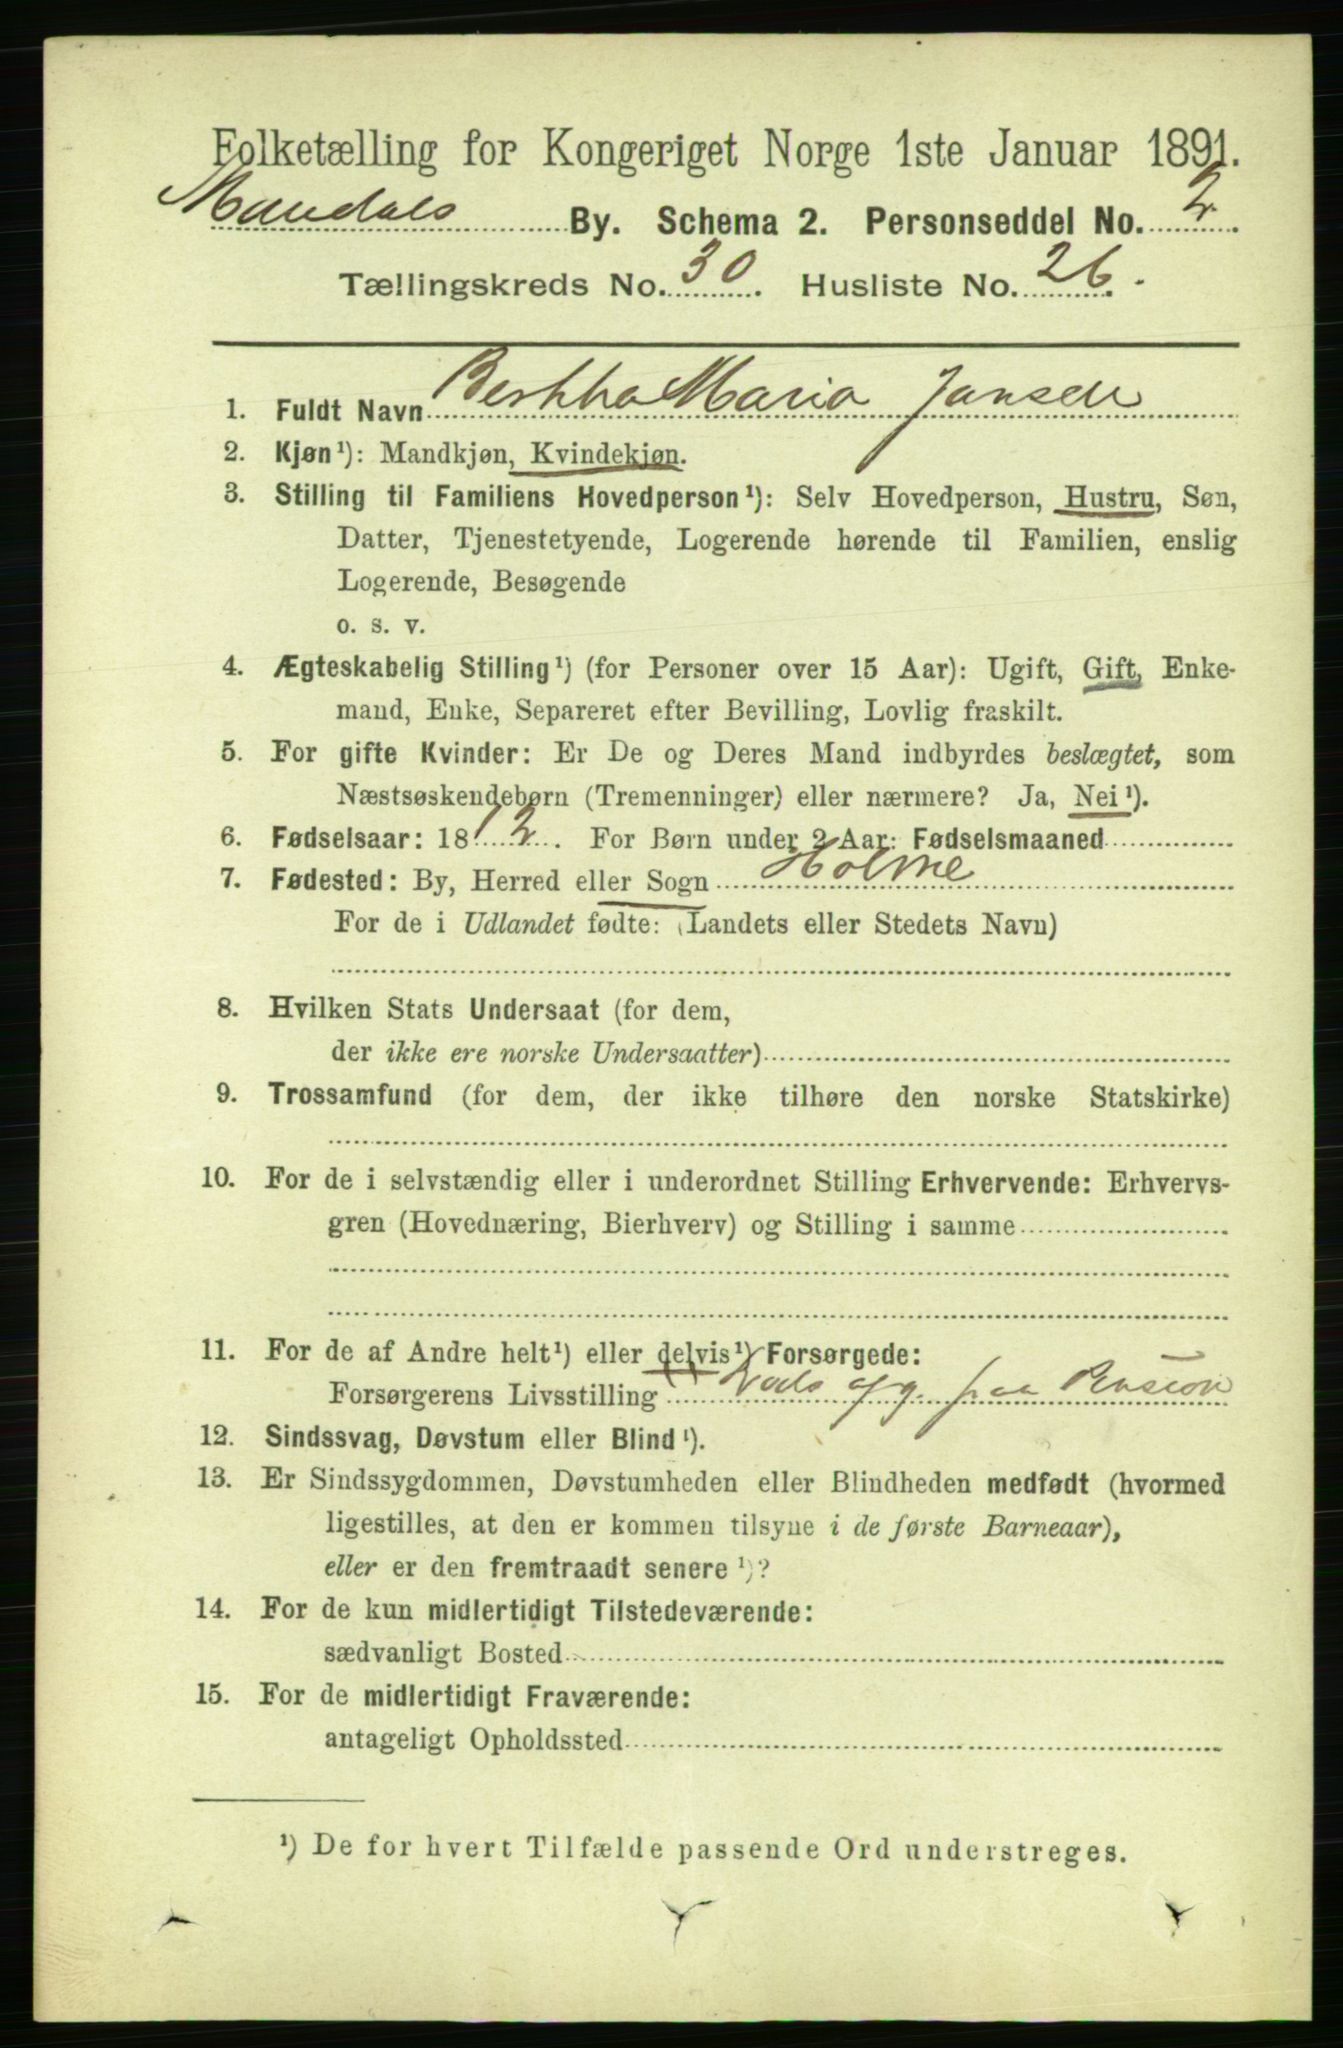 Folketælling for Kongeriget Norge 1ste Januar 1891.
Mandals By. Schema 2. Personseddel No. 2.
Tællingskreds No. 30. Husliste No. 26.
1. Fuldt Navn Berthha Maria Jansen
2. Kjøn¹): Mandkjøn, Kvindekjøn.
3. Stilling til Familiens Hovedperson¹): Selv Hovedperson, Hustru, Søn,
Datter, Tjenestetyende, Logerende hørende til Familien, enslig
Logerende, Besøgende
o. s. v.
4. Ægteskabelig Stilling¹) (for Personer over 15 Aar): Ugift, Gift, Enke-
mand, Enke, Separeret efter Bevilling, Lovlig fraskilt.
5. For gifte Kvinder: Er De og Deres Mand indbyrdes beslægtet, som
Næstsøskendebørn (Tremenninger) eller nærmere? Ja, Nei¹).
6. Fødselsaar: 1812. For Børn under 2 Aar: Fødselsmaaned
7. Fødested: By, Herred eller Sogn Holme
For de i Udlandet fødte: (Landets eller Stedets Navn)
8. Hvilken Stats Undersaat (for dem,
der ikke ere norske Undersaatter)
9. Trossamfund (for dem, der ikke tilhøre den norske Statskirke)
10. For de i selvstændig eller i underordnet Stilling Erhvervende: Erhvervs-
gren (Hovednæring, Bierhverv) og Stilling i samme
11. For de af Andre helt¹) eller delvis¹) Forsørgede:
Forsørgerens Livsstilling paa Pension
12. Sindssvag, Døvstum eller Blind¹).
13. Er Sindssygdommen, Døvstumheden eller Blindheden medfødt (hvormed
ligestilles, at den er kommen tilsyne i de første Barneaar),
eller er den fremtraadt senere¹)?
14. For de kun midlertidigt Tilstedeværende:
sædvanligt Bosted
15. For de midlertidigt Fraværende:
antageligt Opholdssted
¹) De for hvert Tilfælde passende Ord understreges.